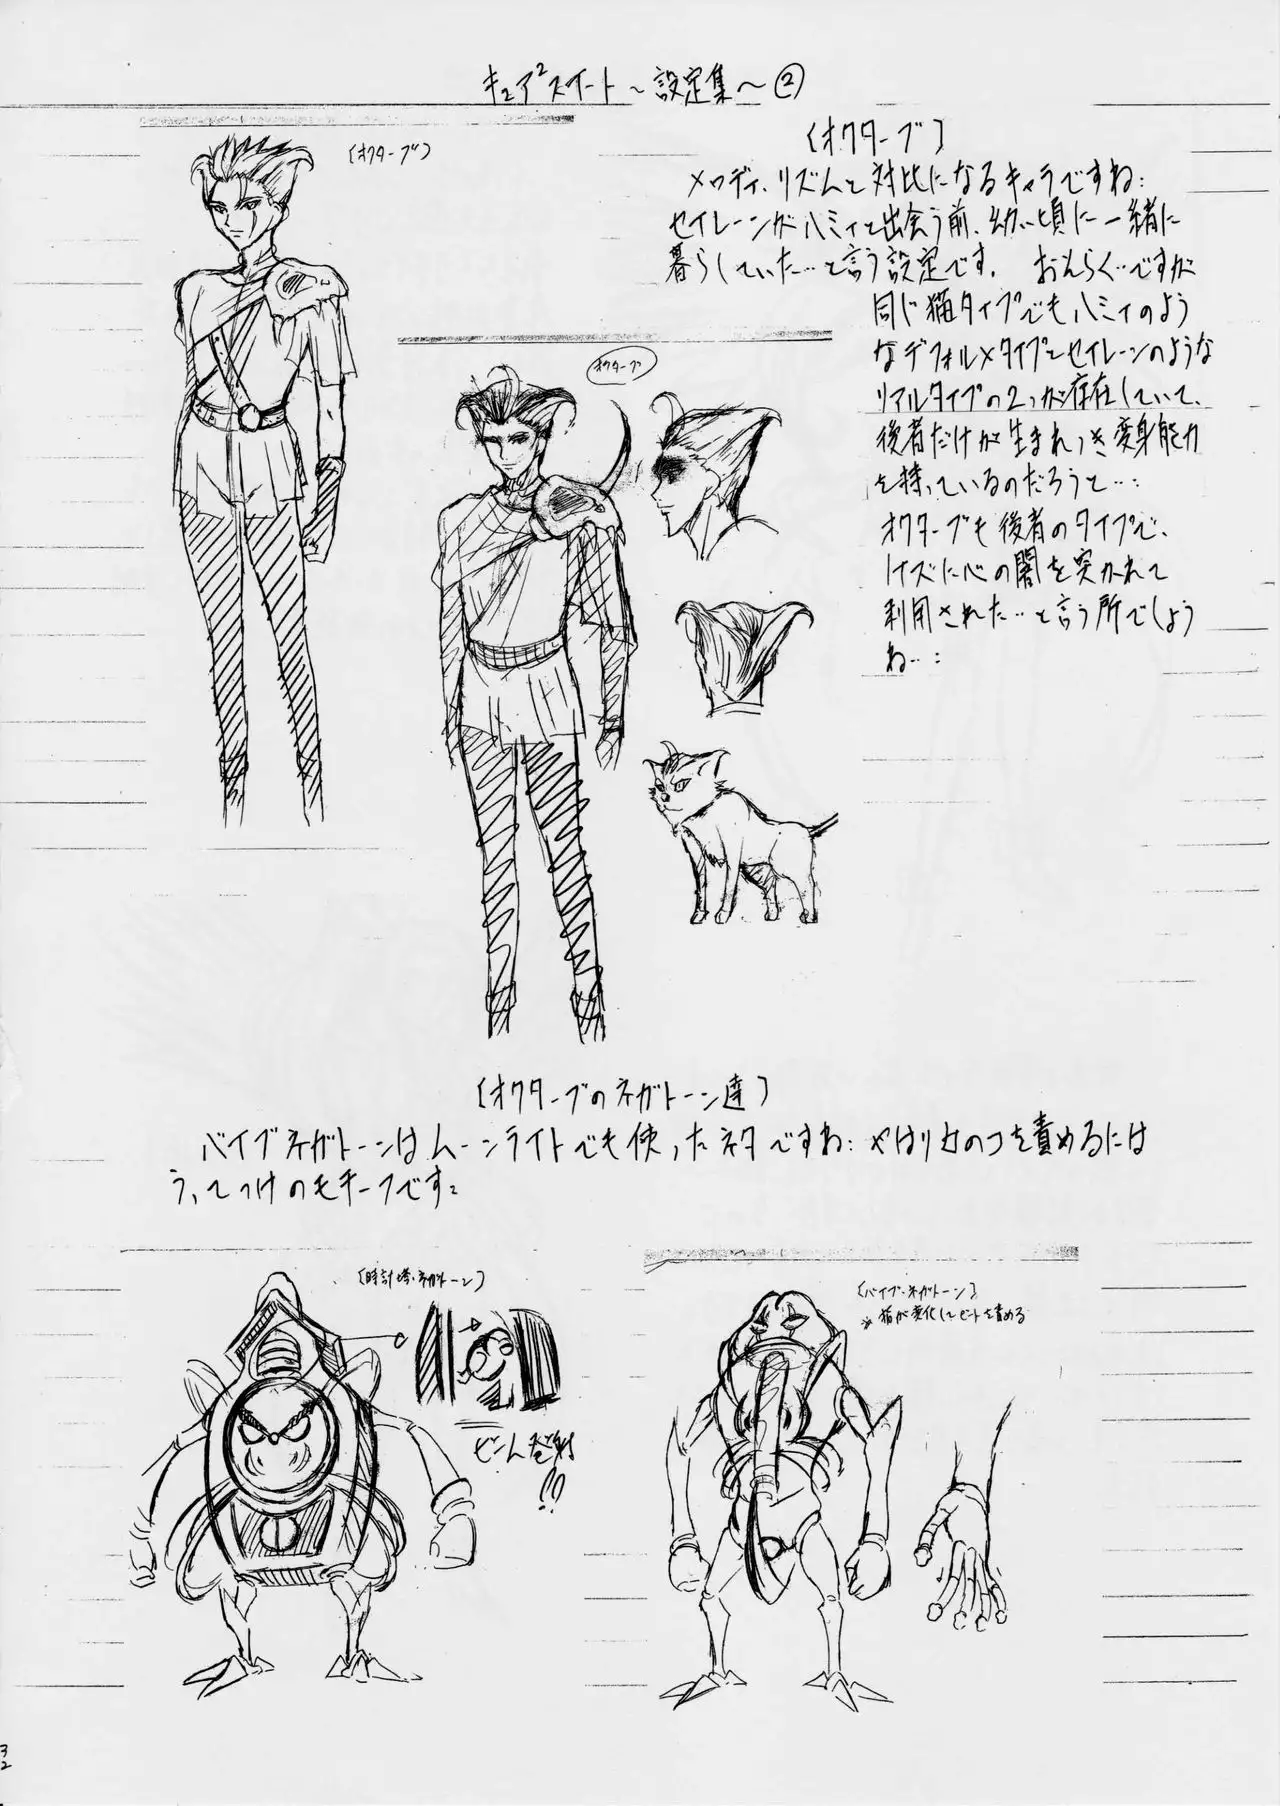 キュア²スイート～設定集～②
(オクターブ)
(オクターブ)
メロディ、リズムと対比になるキャラですね:
セイレーンがハミィと出会う前、幼い頃に一緒に
暮らしていた…と言う設定です。 おそらく…ですが
同じ猫タイプでもハミィのよう
なデフォルメタイプとセイレーンのような
リアルタイプの2つが存在していて、
後者だけが生まれつき変身能力
を持っているのだろうと…:
オクターブも後者のタイプで、
ノイズに心の闇を突かれて
利用された…と言う所でしょう
ね…:
オクターブ
(オクターブのネガトーン達)
バイブネガトーンはムーンライトでも使ったネタですね: やはり女のコを責めるには
うってつけのモチーフです:
(時計塔・ネガトーン)
ビーム発射
!!!
(バイブ・ネガトーン)
※猫が変化してビートを責める
32